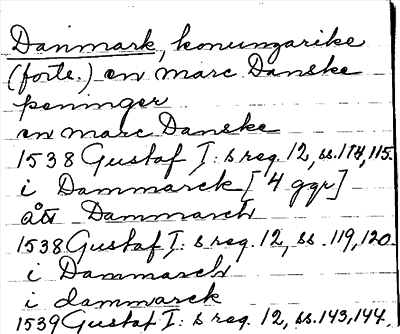 Danmark, konungarike
(forte.) en marc Danske
peninger
en marc Danske
1538 Gustaf I: s reg. 12, ss. 114, 115.
i Dammarck [4 ggr]
ått Dammarck
1538 Gustaf I: s reg. 12, ss. 119, 120.
i Dammarck
i dammarck
1539 Gustaf I: s reg. 12, ss. 143, 144.